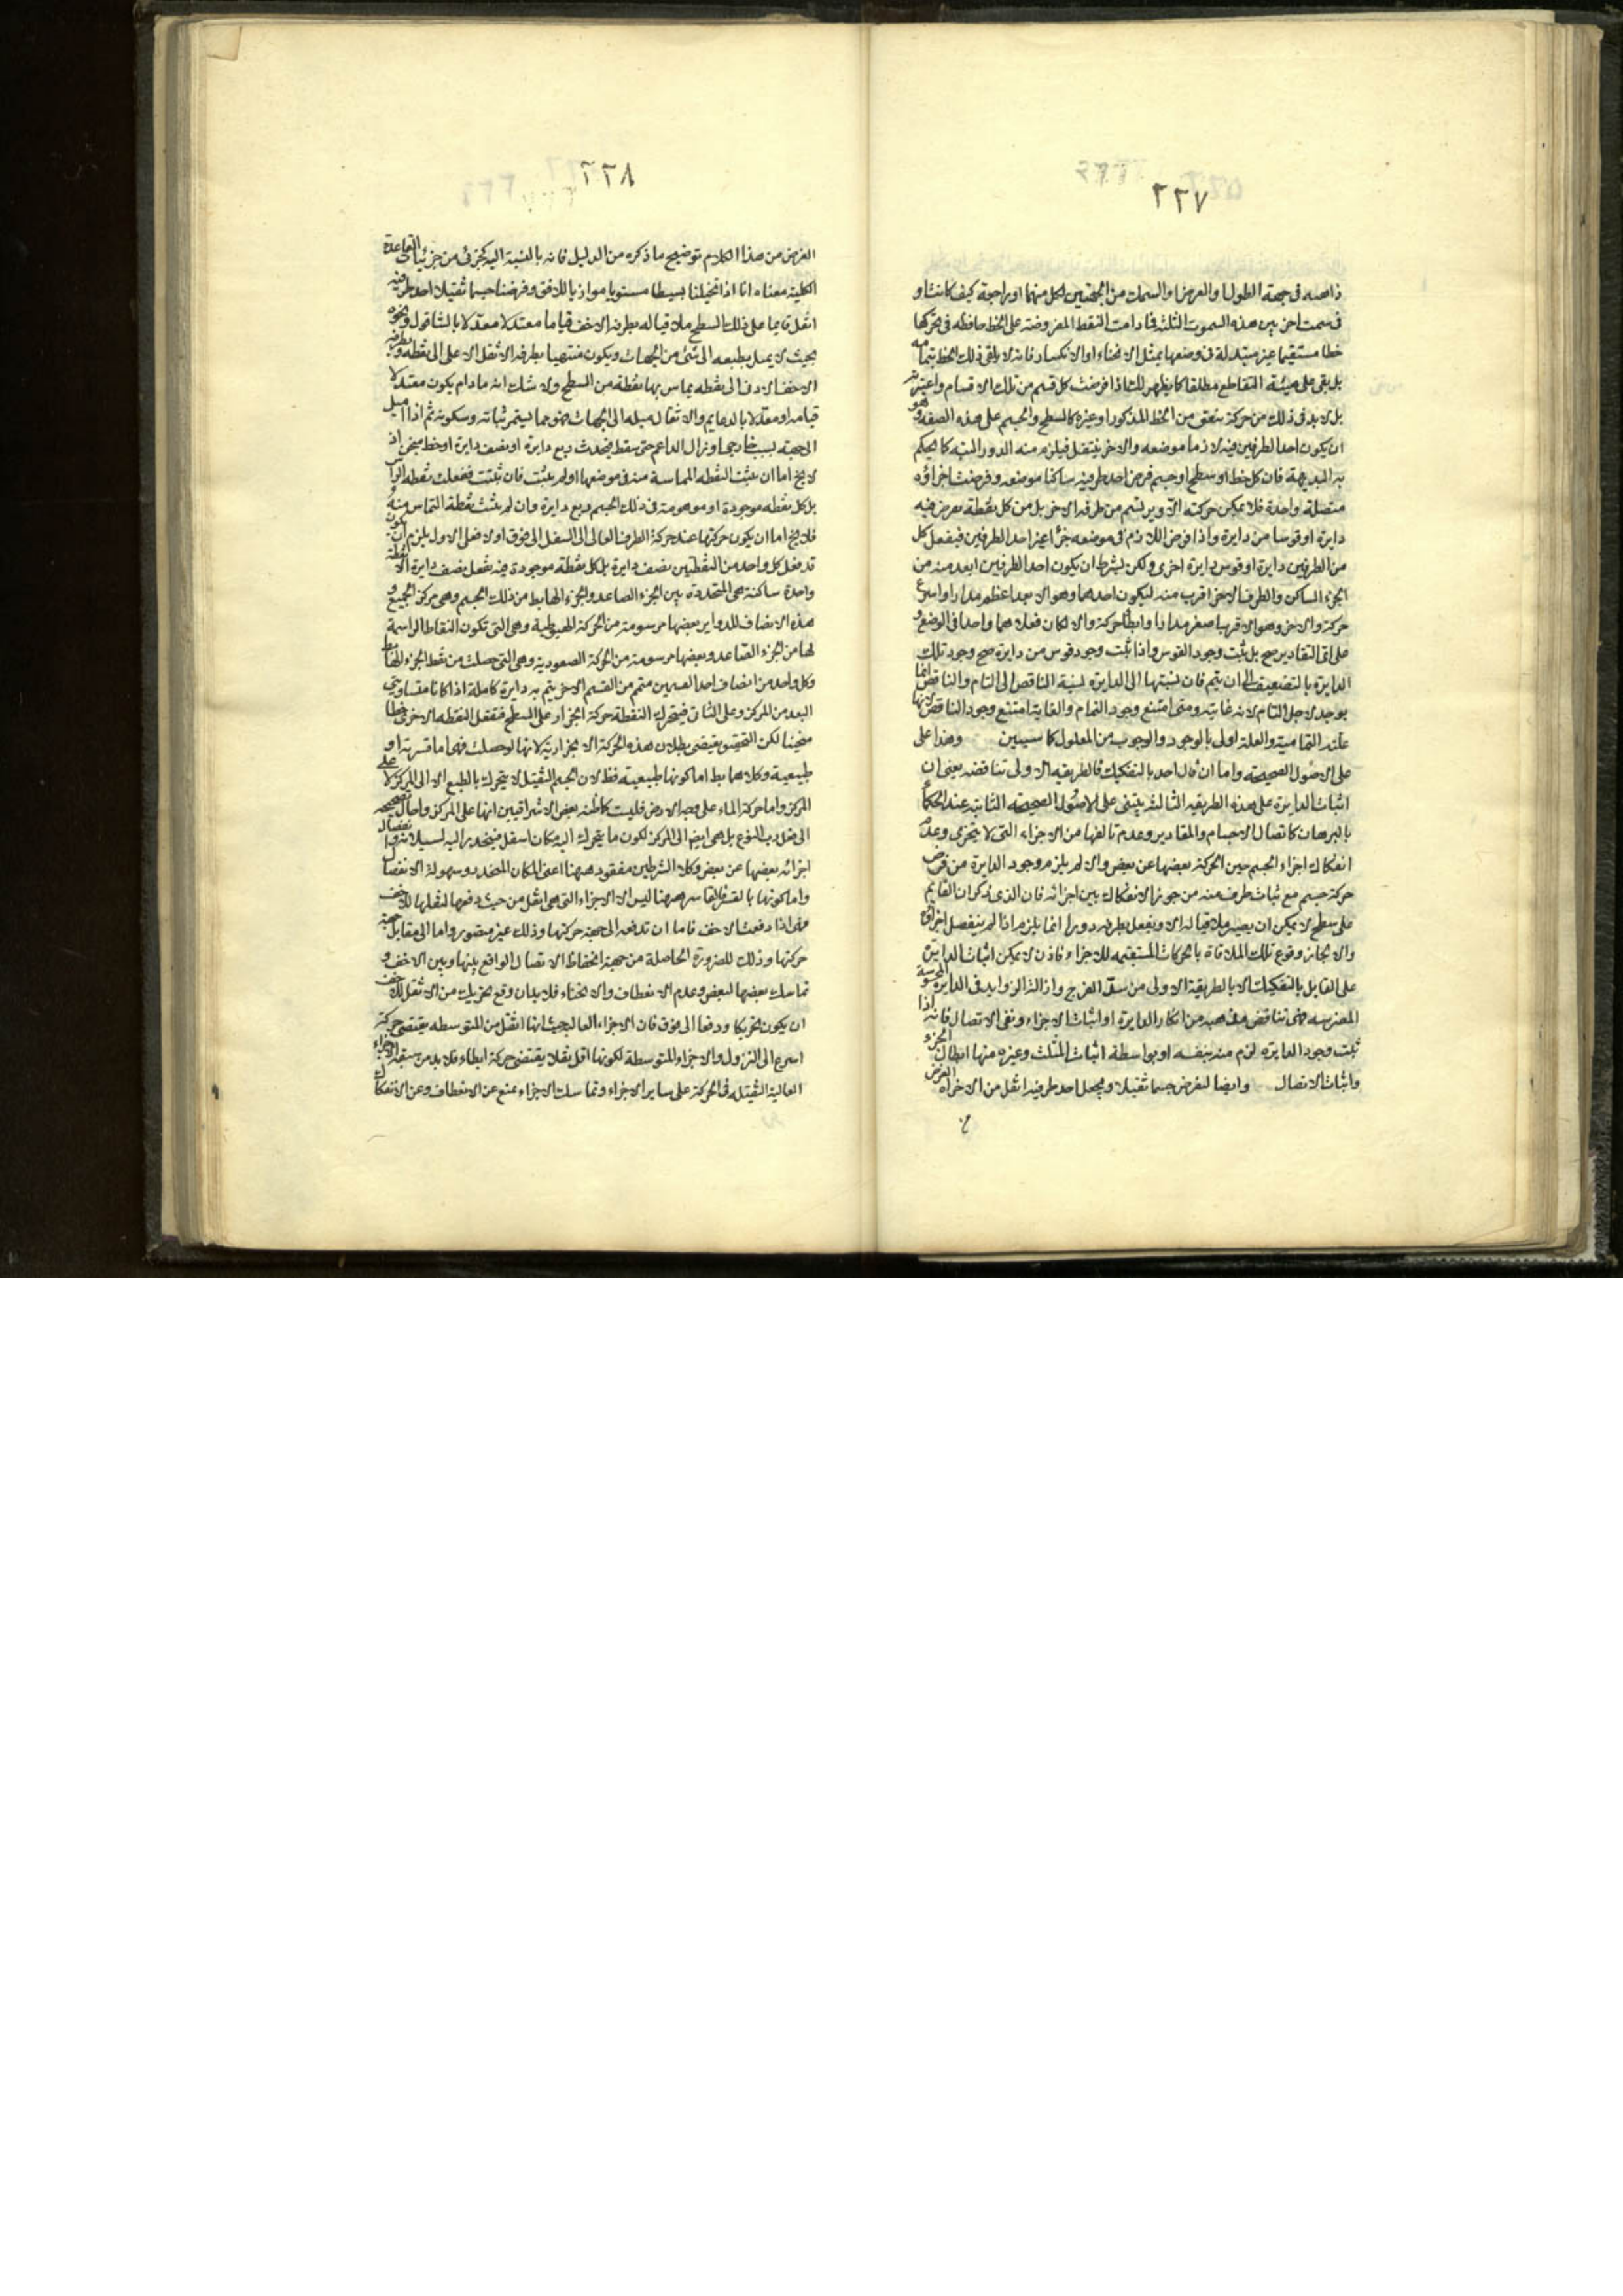 ٢٢٧
ذاهبه فى جهة الطول او العرض او السمك من الجهتين لكل منهما او راجعة كيف كانت او
فى سمت اخر بين هذه السموت الثلثه فما دامت النقط المفروضة على الخط حافظه فى تحركها
خطا مستقيما غير متبدلة فى وضعها بمثل الانحناء او الانكسار فانه لا يلقى ذلك الخط بتمامه
بل بقى على هيئة التقاطع مطلقا كما يظهر لك اذا فرضت كل قسم من تلك الاقسام واعتبرته
بل لا بد فى ذلك من حركة تتفق من الخط المذكور او غيره كالسطح والجسم على هذه الصفة وهو
ان يكون احد الطرفين فيه لازما موضعه والاخر ينتقل فيلزم منه الدور البتة كما يحكم
به البديهة فان كل خط او سطح او جسم فرض احد طرفيه ساكنا موضعه وفرضت اجزاؤه
متصلة واحدة فلا يمكن حركته الا ويرتسم من طرفه الاخر بل من كل نقطة تفرض فيه
دايرة او قوسا من دايرة واذا فرض اللازم فى موضعه جزأ غير احد الطرفين فيفعل كل
من الطرفين دايرة او قوس دايرة اخرى ولكن بشرط ان يكون احد الطرفين ابعد منه من
الجزء الساكن والطرف الاخر اقرب منه ليكون احدهما وهو الابعد اعظم مدارا واسرع
حركة والاخر وهو الاقرب اصغر مدارا وابطأ حركة والا لكان فعلاهما واحدا فى الوضع و
على اى التقادير صح بل ثبت وجود القوس واذا ثبت وجود قوس من دايرة صح وجود تلك
الدايرة بالتضعيف الى ان يتم فان نسبتها الى الدايرة نسبة الناقص الى التام والناقص انما
يوجد لاجل التام لانه غايته ومتى امتنع وجود التمام والغاية امتنع وجود الناقص لانها
علته التمامية والعلة اولى بالوجود والوجوب من المعلول كما سيبين وهذا على
على الاصول الصحيحة واما ان قال احد بالتفكيك فالطريقه الاولى تناقضه يعنى ان
اثبات الدايرة على هذه الطريقه الثالثه يبتنى على الاصول الصحيحه الثابته عند الحكما
بالبرهان كاتصال الاجسام والمقادير وعدم تالفها من الاجزاء التى لا يتجزى وعدم
انفكاك اجزاء الجسم حين الحركة بعضها عن بعض والا لم يلزم وجود الدايرة من فرض
حركة جسم مع ثبات طرف منه من جوز الانفكاك بين اجزائه فان الذى ذكر ان القايم
على سطح لا يمكن ان يصير ملاقيا له الا ويفعل بطرفه دورا انما يلزم اذا لم ينفصل اجزاؤه
والا لجاز وقوع تلك الملاقاة بالحركات المستقيمه للاجزاء فاذن لا يمكن اثبات الدايرة
على القايل بالتفكيك الا بالطريقة الاولى من سدّ الفرج وازالة الزوايد فى الدايرة المحسوسة
المضرسه فهى تناقض مذهبه من انكار الدايرة او اثبات الاجزاء ونفى الاتصال فانه اذا
ثبت وجود الدايره لزم منه بنفسه او بواسطة اثبات المثلث وغيره منها ابطال الجزء و
واثبات الاتصال وايضا لنفرض جسما ثقيلا ويجعل احد طرفيه اثقل من الاخر اه الغرض
٢٢٨
الغرض من هذا الكلام توضيح ما ذكره من الدليل فانه بالنسبة اليه كجزئى من جزئيات القاعدة
الكلية معناه انا اذا تخيلنا بسيطا مستويا موازيا للافق وفرضنا جسما ثقيلا احد طرفيه
اثقل قايما على ذلك السطح ملاقيا له بطرفه الاخف قياما معتدلا معدلا بالشاقول ونحوه
بحيث لا يميل بطبعه الى شئ من الجهات ويكون منتهيا بطرفه الاثقل الاعلى الى نقطه وبطرفه
الاخف الادنى الى نقطه يماس بها نقطة من السطح ولا شك انه ما دام يكون معتدلا
قيامه او معدلا بالدعايم والاثقال ميله الى الجهات فهو مما يستمر ثباته وسكونه ثم اذا اميل
الى جهة بسبب خارجى او زال الداعم حتى سقط فيحدث ربع دايرة او نصف دايرة او خط منحن اذ
لا يخ اما ان يثبت النقطه المماسة منه فى موضعها او لم يثبت فان ثبتت ففعلت نقطه الراس
بل كل نقطه موجودة او موهومة فى ذلك الجسم ربع دايرة وان لم يثبت نقطة التماس منه
فلا يخ اما ان يكون حركتها عند حركة الطرف العالى الى السفل الى فوق او لا فعلى الاول يلزم ان يكون
قد فعل كل واحد من النقطتين نصف دايرة بل كل نقطة موجودة فيه تفعل نصف دايرة الا نقطة
واحدة ساكنة هى المتحددة بين الجزء الصاعد والجزء الهابط من ذلك الجسم وهى مركز الجميع و
هذه الانصاف للدواير بعضها مرسومة من الحركة الهبوطية وهى التى تكون النقاط الراسمة
لها من الجزء الصاعد وبعضها مرسومة من الحركة الصعودية وهى التى حصلت من نقط الجزء الهابط
وكل واحد من انصاف احد القسمين متمم من القسم الاخر يتم به دايرة كاملة اذا كانا متساويتى
البعد من المركز وعلى الثانى فيتحرك النقطة حركة انجرار على السطح فتفعل النقطه الاخرى خطا
منحنيا لكن التحقيق يقتضى بطلان هذه الحركة الانجرارية لانها لو حصلت فهى اما قسرية او
طبيعية وكلاهما بط اما كونها طبيعية فظ لان الجسم الثقيل لا يتحرك بالطبع الا الى المركز لا على
المركز واما حركة الماء على وجه الارض فليست كما ظنه بعض الاشراقيين انها على المركز واحال تصحيحه
الى فعل رب النوع بل هى ايضا الى المركز لكون ما يتحرك اليه مكان اسفل فينحدر اليه لسيلانه وانفصال
اجزائه بعضها عن بعض وكلا الشرطين مفقود ههنا اعنى المكان المنحدر وسهولة الانفصال
واما كونها بالقسر فالقاسر ههنا ليس الا الاجزاء التى هى اثقل من حيث دفعها لثقلها للاخف
فهى اذا دفعت الاخف فاما ان تدفعه الى جهة حركتها وذلك غير متصور واما الى مقابل جهة
حركتها وذلك للضرورة الحاصلة من جهة انحفاظ الاتصال الواقع بينها وبين الاخف و
تماسك بعضها لبعض وعدم الانعطاف والانحناء فلا بد ان وقع تحريك من الاثقل للاخف
ان يكون تحريكا ودفعا الى فوق فان الاجزاء العالية حيث انها اثقل من المتوسطه يقتضى حركة
اسرع الى النزول والاجزاء المتوسطة لكونها اقل ثقلا يقتضى حركة ابطاء فلا بد من سبقة الاجزاء
العالية الثقيله فى الحركة على ساير الاجزاء وتماسك الاجزاء يمنع عن الانعطاف وعن الانفكاك